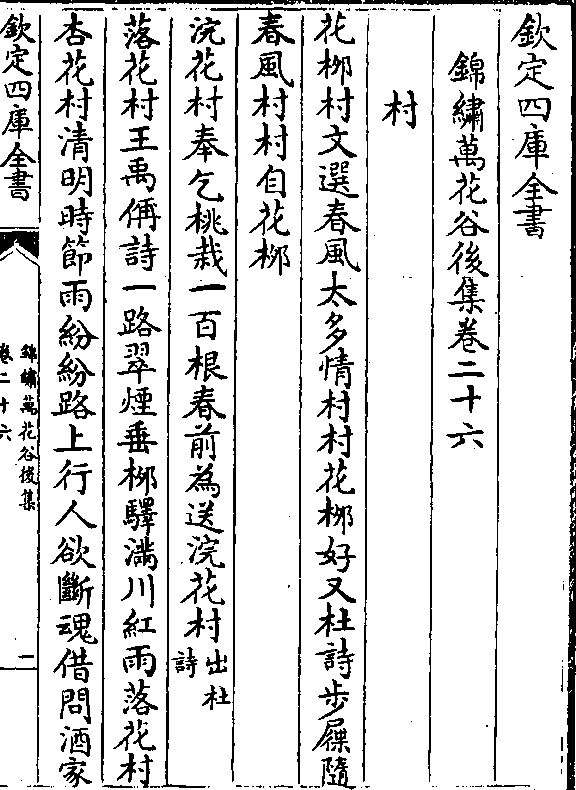 欽定四庫全書
錦繡萬花谷後集卷二十六
村
花桞村文選春風太多情村村花桞好又杜詩步屧隨
春風村村自花桞
浣花村奉乞桃栽一百根春前為送浣花村出杜
詩
落花村王禹偁詩一路翠煙垂桞驛滿川紅雨落花村
杏花村清明時節雨紛紛路上行人欲斷魂借問酒家
欽定四庫全書
錦繡萬花谷後集
卷二十六
一